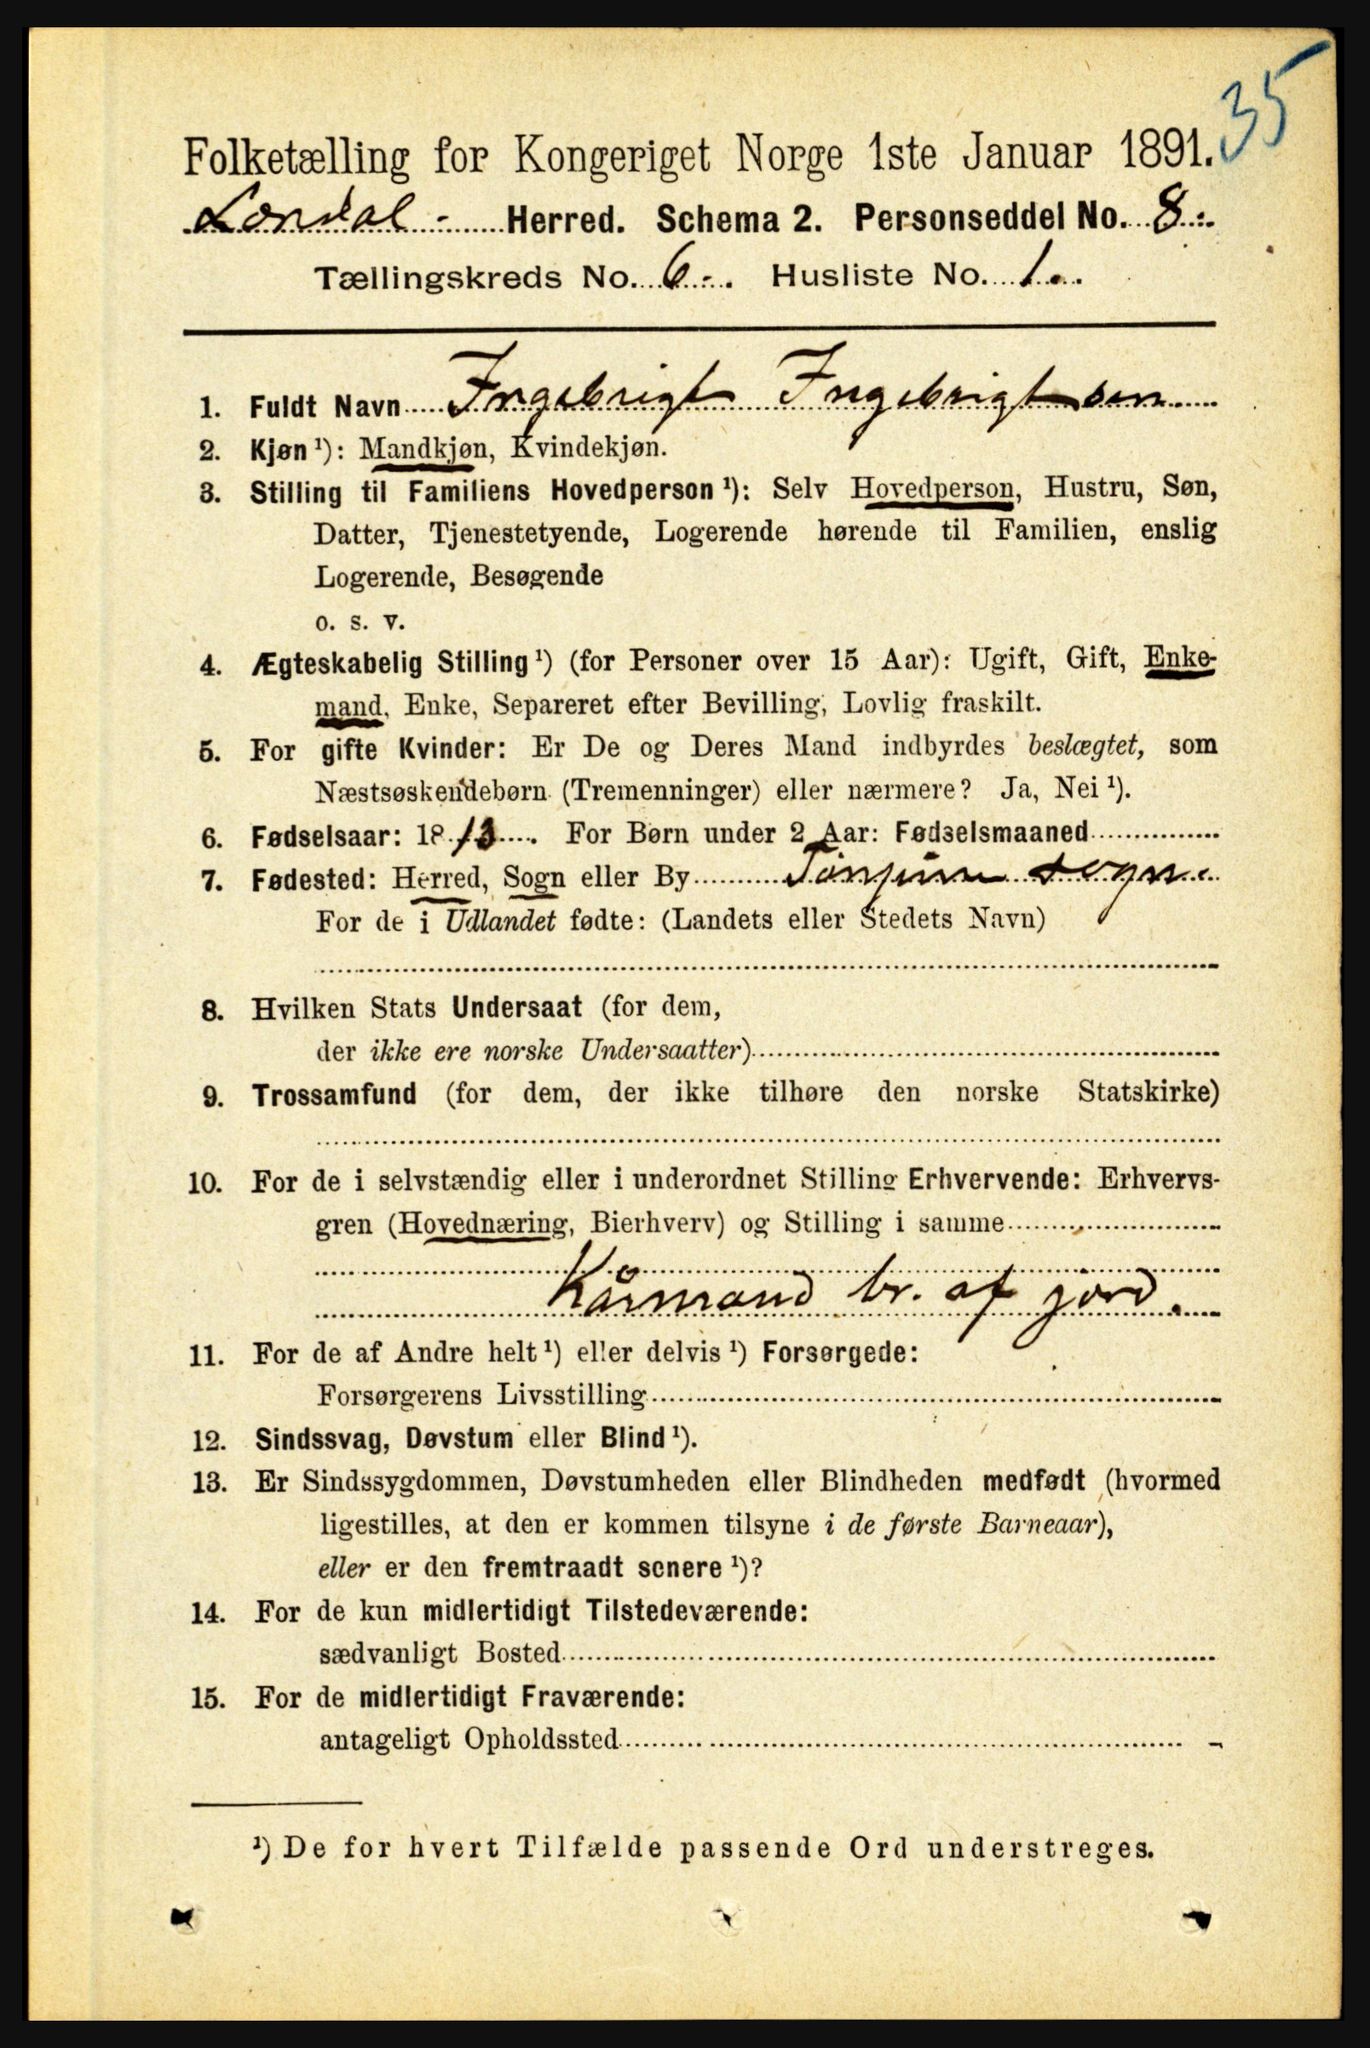 35
Folketælling for Kongeriget Norge 1ste Januar 1891.
Lærdal Herred. Schema 2. Personseddel No. 8.
Tællingskreds No. 6. Husliste No. 1.
1. Fuldt Navn Ingebrigt Ingebrigtsen
2. Kjøn ¹): Mandkjøn, Kvindekjøn.
3. Stilling til Familiens Hovedperson ¹): Selv Hovedperson, Hustru, Søn,
Datter, Tjenestetyende, Logerende hørende til Familien, enslig
Logerende, Besøgende
o. s. v.
4. Ægteskabelig Stilling ¹) (for Personer over 15 Aar): Ugift, Gift, Enke-
mand, Enke, Separeret efter Bevilling, Lovlig fraskilt.
5. For gifte Kvinder: Er De og Deres Mand indbyrdes beslægtet, som
Næstsøskendebørn (Tremenninger) eller nærmere? Ja, Nei ¹).
6. Fødselsaar: 1813. For Børn under 2 Aar: Fødselsmaaned
7. Fødested: Herred, Sogn eller By Tønjum sogn.
For de i Udlandet fødte: (Landets eller Stedets Navn)
8. Hvilken Stats Undersaat (for dem,
der ikke ere norske Undersaatter)
9. Trossamfund (for dem, der ikke tilhøre den norske Statskirke)
10. For de i selvstændig eller i underordnet Stilling Erhvervende: Erhvervs-
gren (Hovednæring, Bierhverv) og Stilling i samme
Kårmand br. af jord.
11. For de af Andre helt ¹) eller delvis ¹) Forsørgede:
Forsørgerens Livsstilling
12. Sindssvag, Døvstum eller Blind ¹).
13. Er Sindssygdommen, Døvstumheden eller Blindheden medfødt (hvormed
ligestilles, at den er kommen tilsyne i de første Barneaar),
eller er den fremtraadt senere ¹)?
14. For de kun midlertidigt Tilstedeværende:
sædvanligt Bosted
15. For de midlertidigt Fraværende:
antageligt Opholdssted
¹) De for hvert Tilfælde passende Ord understreges.